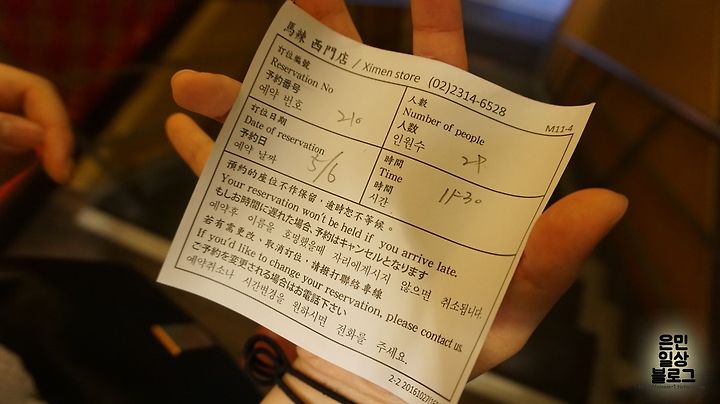 馬辣 西門店 / Ximen store (02)2314-6528
M11-4
訂位編號
Reservation No
予約番号
예약 번호
210
人數
Number of people
人数
인원수
訂位日期
Date of reservation
予約日
예약 날짜
5/6
時間
Time
時間
시간
預約的座位不作保留，逾時恕不等候。
Your reservation won't be held if you arrive late.
もしお時間に遅れた場合、予約はキャンセルとなります
예약후 이름을 호명했을때 자리에계시지 않으면 취소됩니다.
若有需更改、取消訂位，請撥打聯絡專線
If you'd like to change your reservation, please contact us.
ご予約を変更される場合はお電話下さい
예약취소나 시간변경을 원하시면 전화를 주세요.
은민
일상
블로그